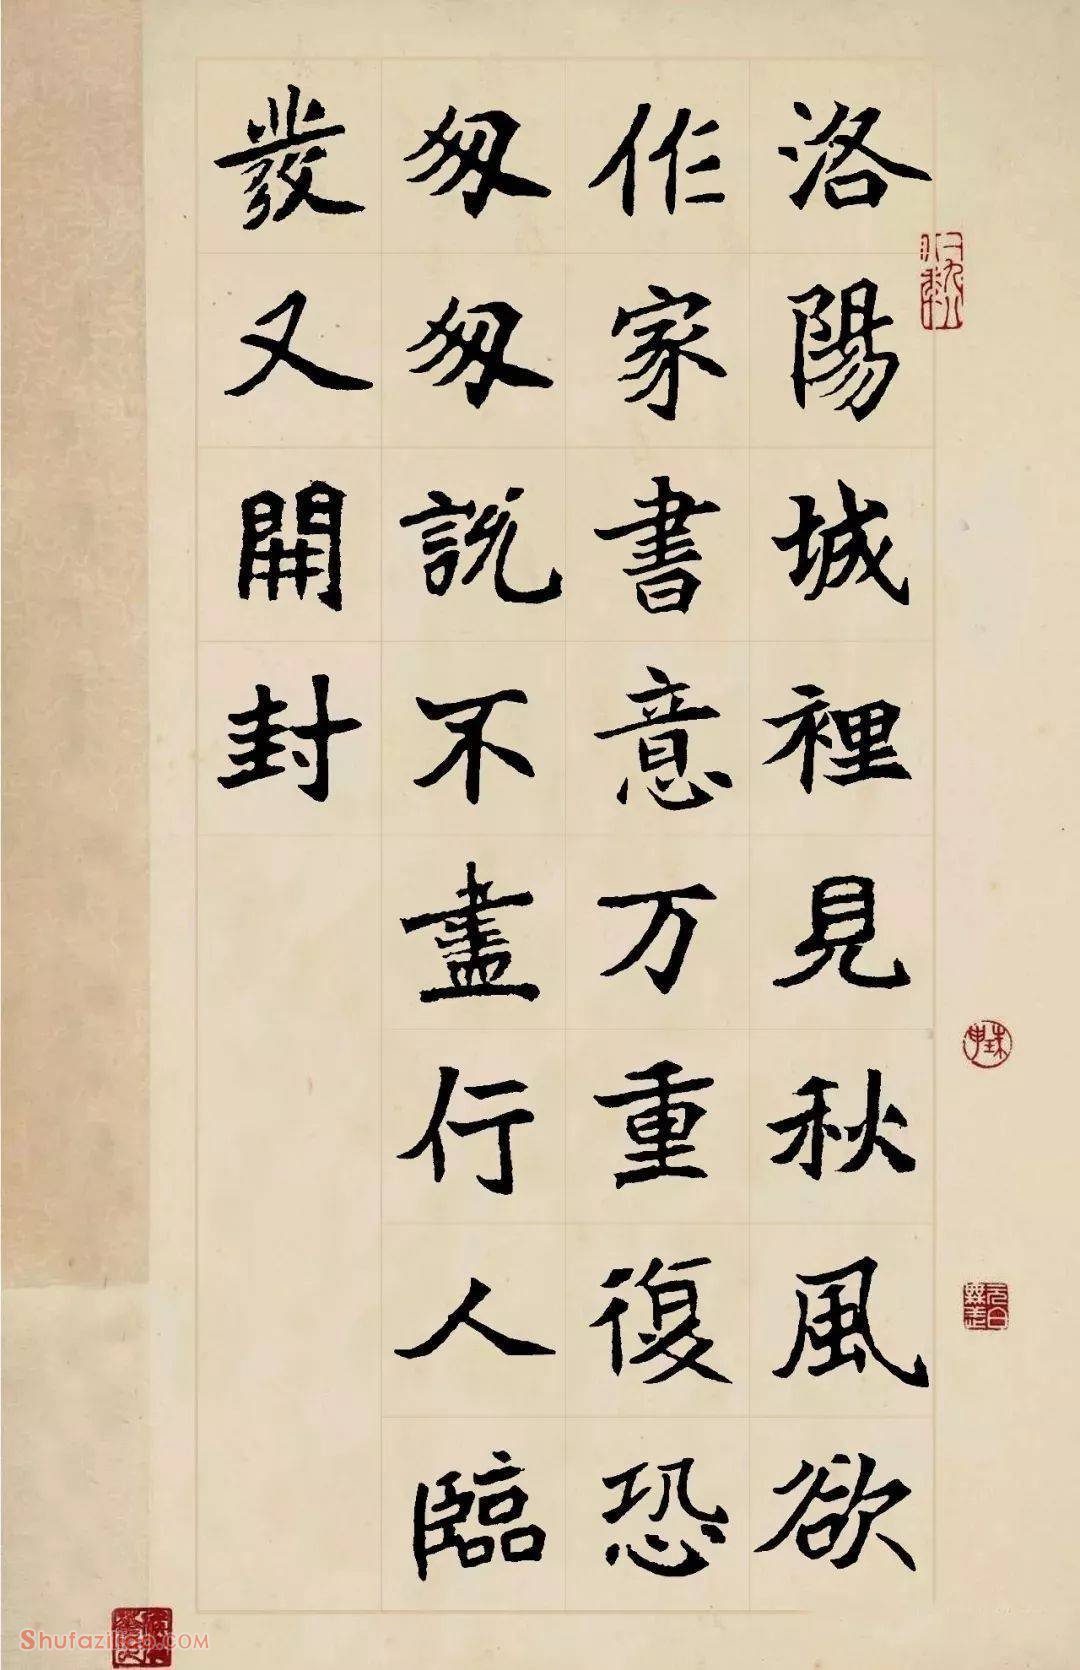 洛陽城裡見秋風欲
作家書意万重復恐
匆匆説不盡行人臨
發又開封
Shufaziliao.COM